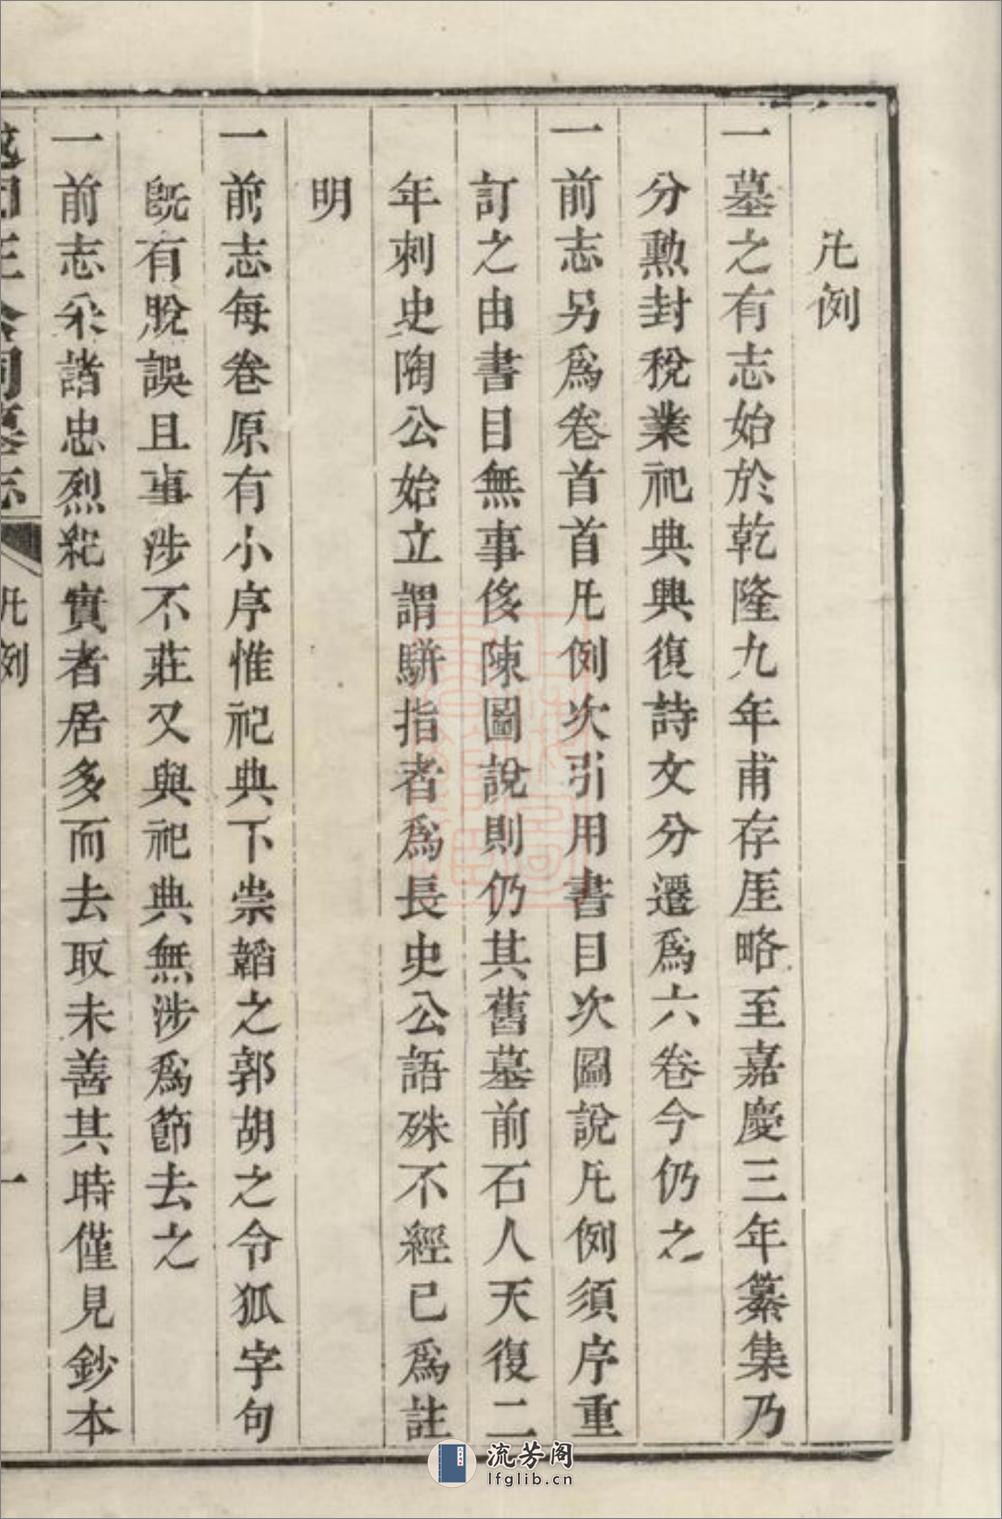 凡例
一墓之有志始於乾隆九年甫存厓略至嘉慶三年纂集乃
分勲封稅業祀典興復詩文分遷爲六卷今仍之
一前志另爲卷首首凡例次引用書目次圖說凡例須序重
訂之由書目無事侈陳圖說則仍其舊墓前石人天復二
年刺史陶公始立謂駢指者爲長史公語殊不經已爲註
明
一前志每卷原有小序惟祀典下崇韜之郭胡之令狐字句
旣有脫誤且事涉不莊又與祀典無涉爲節去之
一前志釆諸忠烈紀實者居多而去取未善其時僅見鈔本
越國王公祠墓志 凡例 一
流芳阁
lfglib.cn